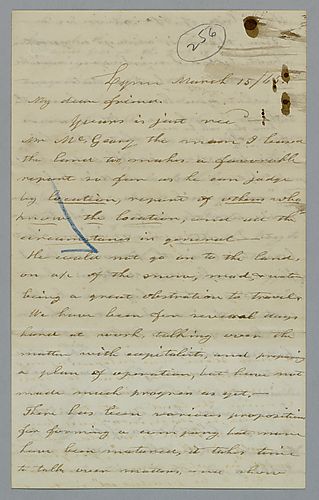 256
Lynn March 15/65
My dear friend.
Yours is just rec
Mr McGeary the man I leased
the land to, makes a favorable
report so far as he can judge
by location, report of others who
know the location, and all the
circumstances in general—
He could not go on to the land,
on a/c of the snow, mud & water
being a great obstruction to travel.
We have been for several days
hard at work, talking over the
matter with capitalists, and preparing
a plan of operation, but have not
made much progress as yet,—
There has been various proposition
for forming a company but none
have been matured, it takes time
to talk over matters, and show